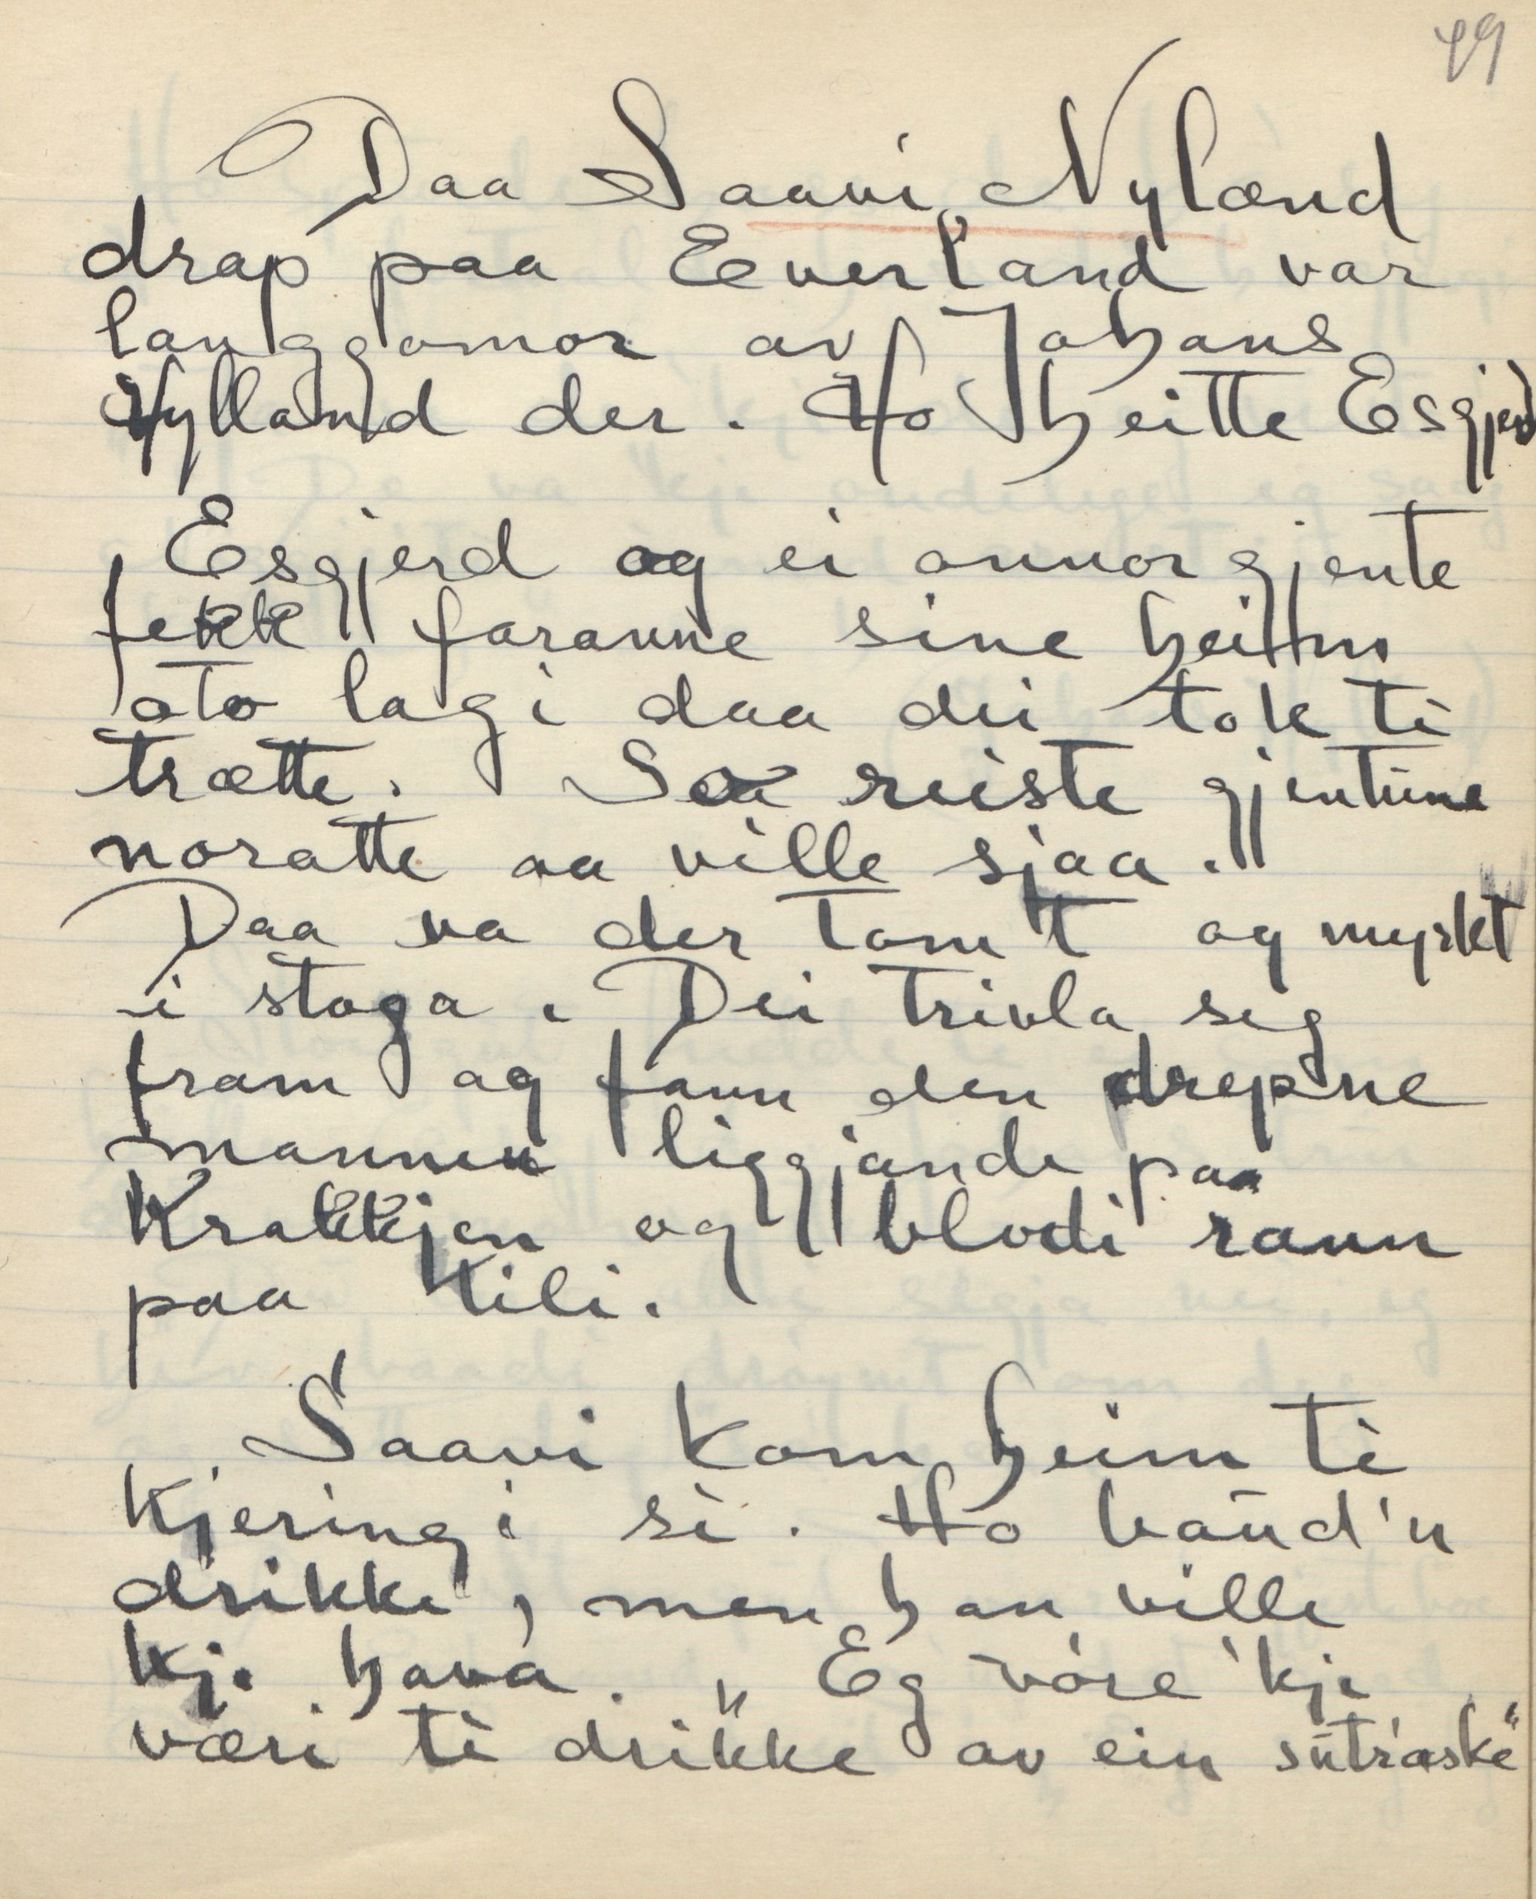 49
Daa Saavi Nylænd
drap paa Everland var
langgomor av Johans
Hylland der. Ho heitte Esgjerd
Esgjerd og ei annor gjente
fekk faranne sine heim
oto lagi daa dei tok te
trætte. Saa reiste gjentune
noratte aa ville sjaa.
Daa va der tomt og myrkt
i stoga. Dei trivla seg
fram og fann den drepne
mannen liggjande paa
Krakkjen og blodi rann
paa tili.
Saavi kom heim te
kjeringi si. Ho baud'n
drikke, men han ville
kje hava. „Eg vóre 'kje
væri te drikke av ein sutraske"